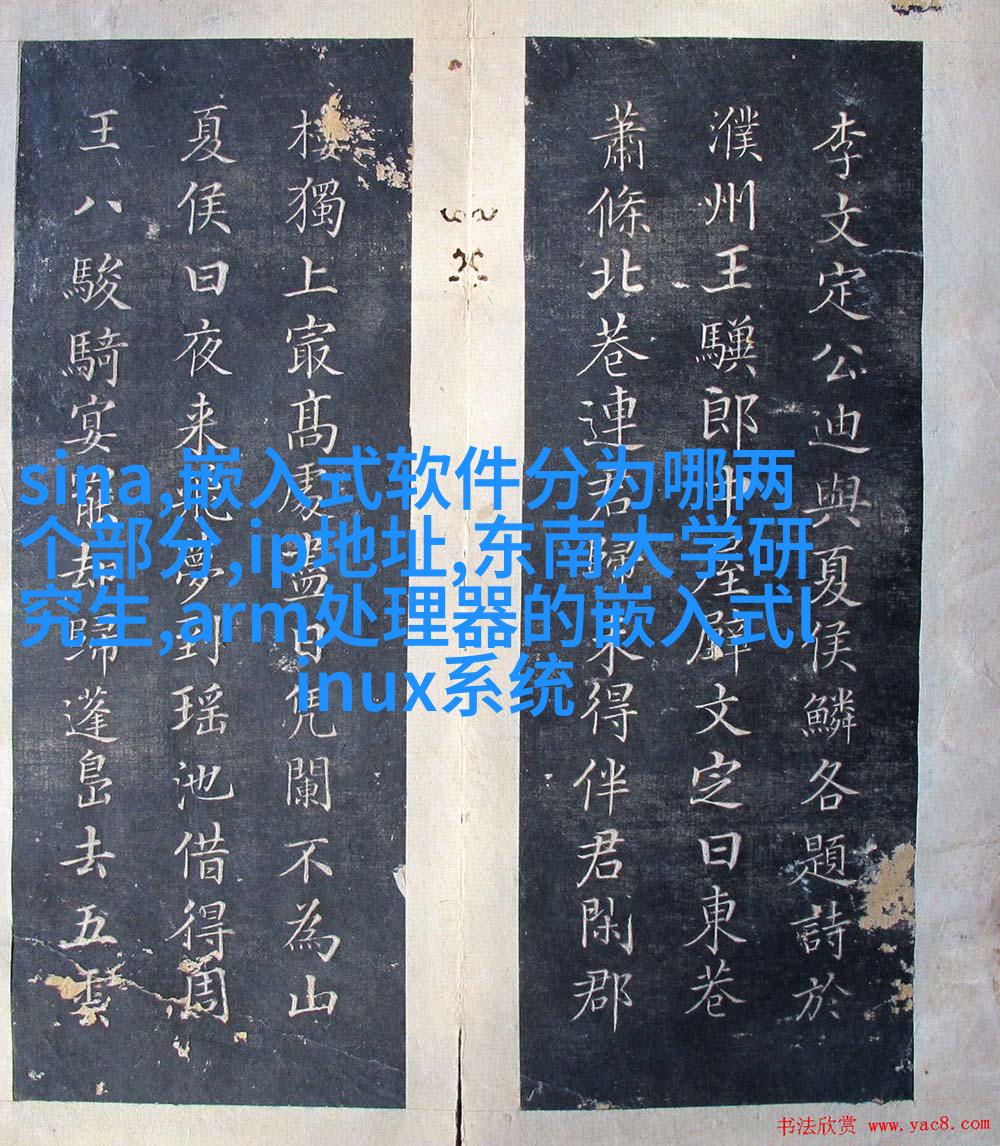 李文定公迪與夏侯鱗各題詩於
濮州王郎中壁文定曰東巷
蕭條北巷連君歸未得伴君閑郡
樓獨上冣髙處盡日凭闌不為山
夏侯曰夜来飛夢到瑶池借得周
王八駿騎宴罷却歸蓬島去五雲
sina,嵌入式软件分为哪两
个部分,ip地址,东南大学研
究生,arm处理器的嵌入式l
inux系统
书法欣赏 www.yac8.com